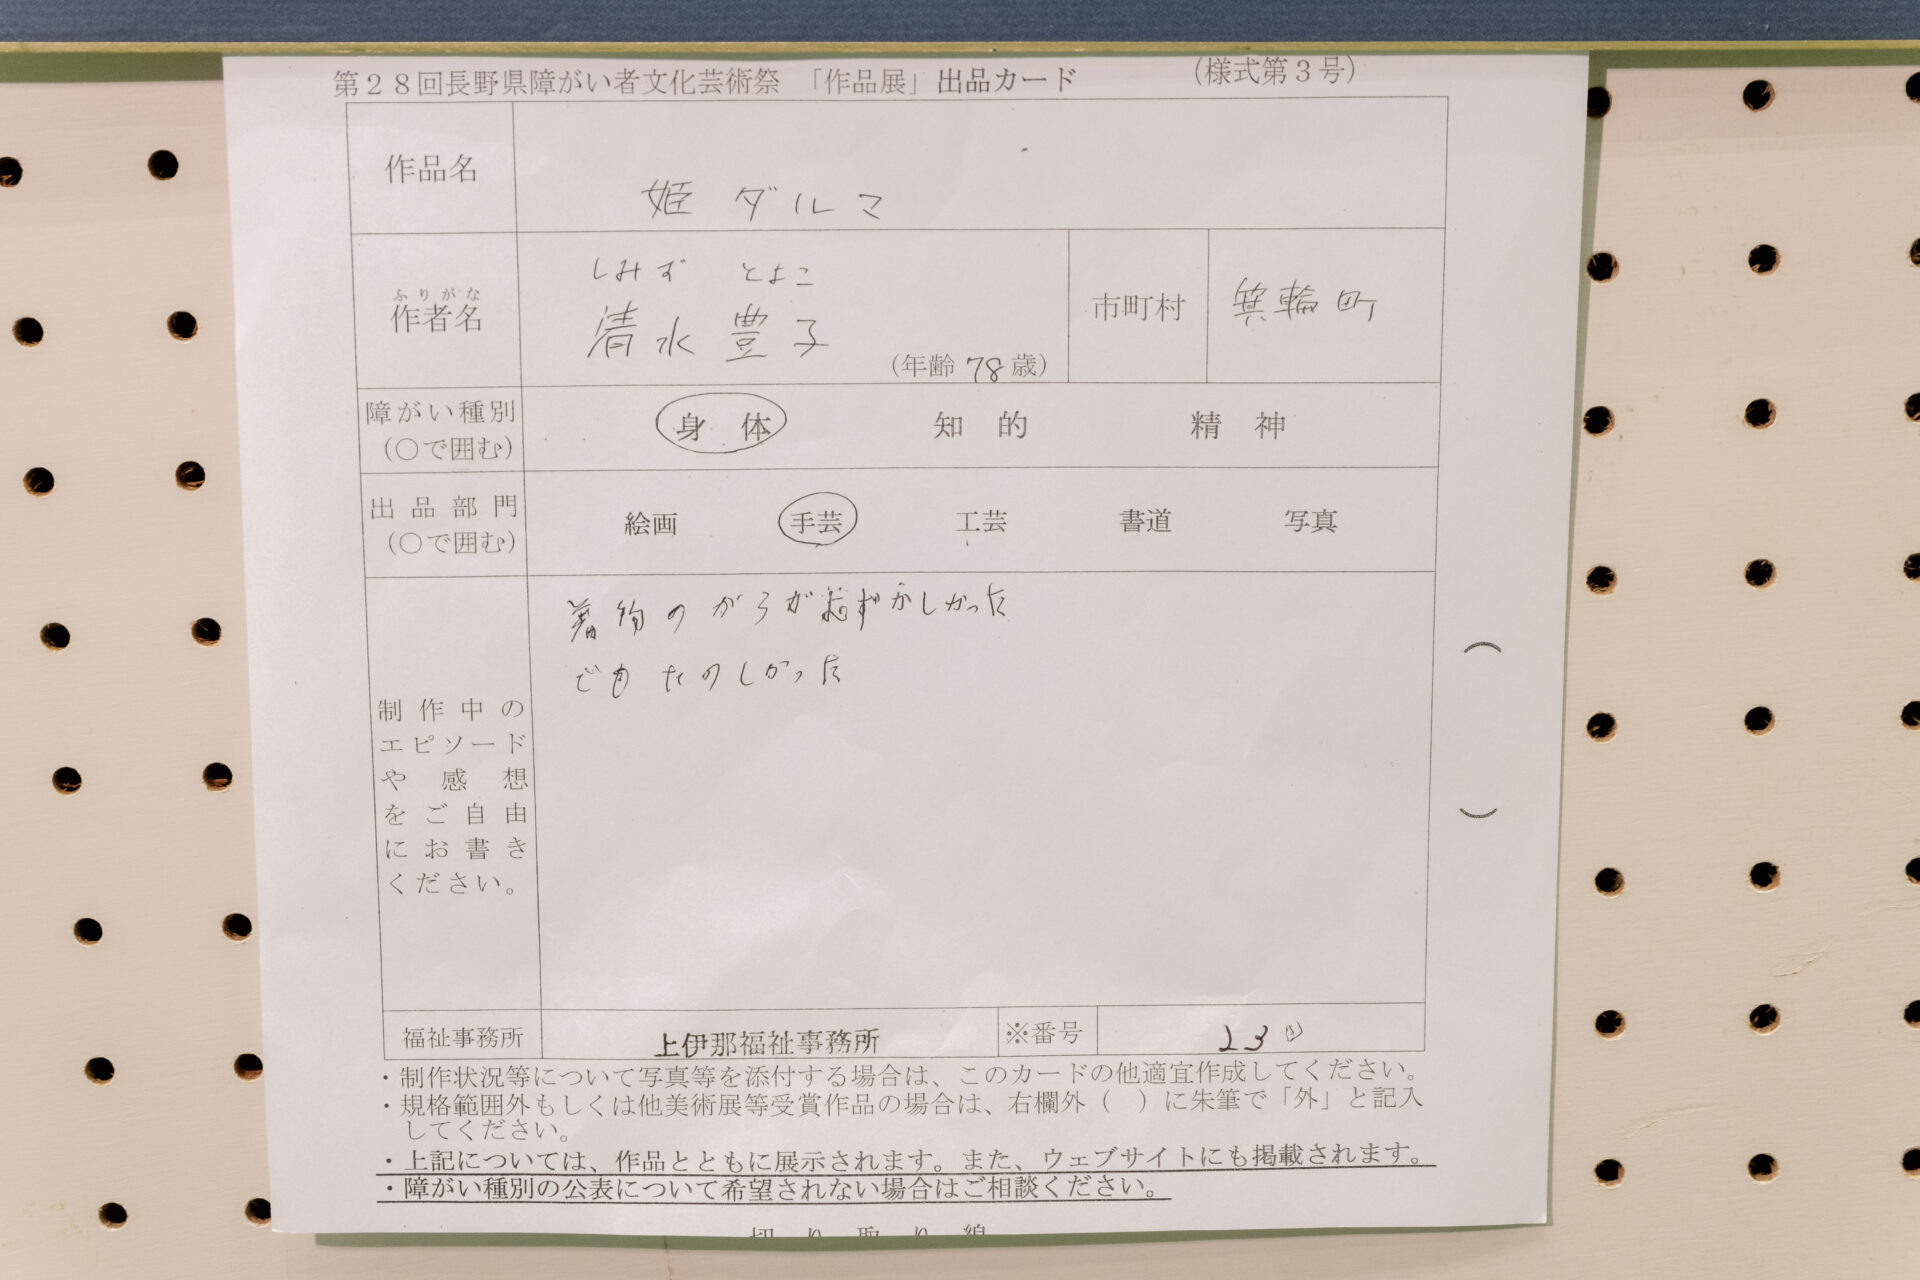 第２８回長野県障がい者文化芸術祭 「作品展」出品カード （様式第３号）
作品名
姫ダルマ
ふりがな
作者名
しみず とよこ
清水 豊子
（年齢 78 歳）
市町村
箕輪町
障がい種別
（○で囲む）
身 体 知 的 精 神
出品部門
（○で囲む）
絵画 手芸 工芸 書道 写真
制作中の
エピソード
や感想
をご自由
にお書き
ください。
着物のがらがむずかしかった
でも たのしかった
福祉事務所
上伊那福祉事務所
※番号
23
・制作状況等について写真等を添付する場合は、このカードの他適宜作成してください。
・規格範囲外もしくは他美術展等受賞作品の場合は、右欄外（ ）に朱筆で「外」と記入
してください。
・上記については、作品とともに展示されます。また、ウェブサイトにも掲載されます。
・障がい種別の公表について希望されない場合はご相談ください。
切 り 取 り 線